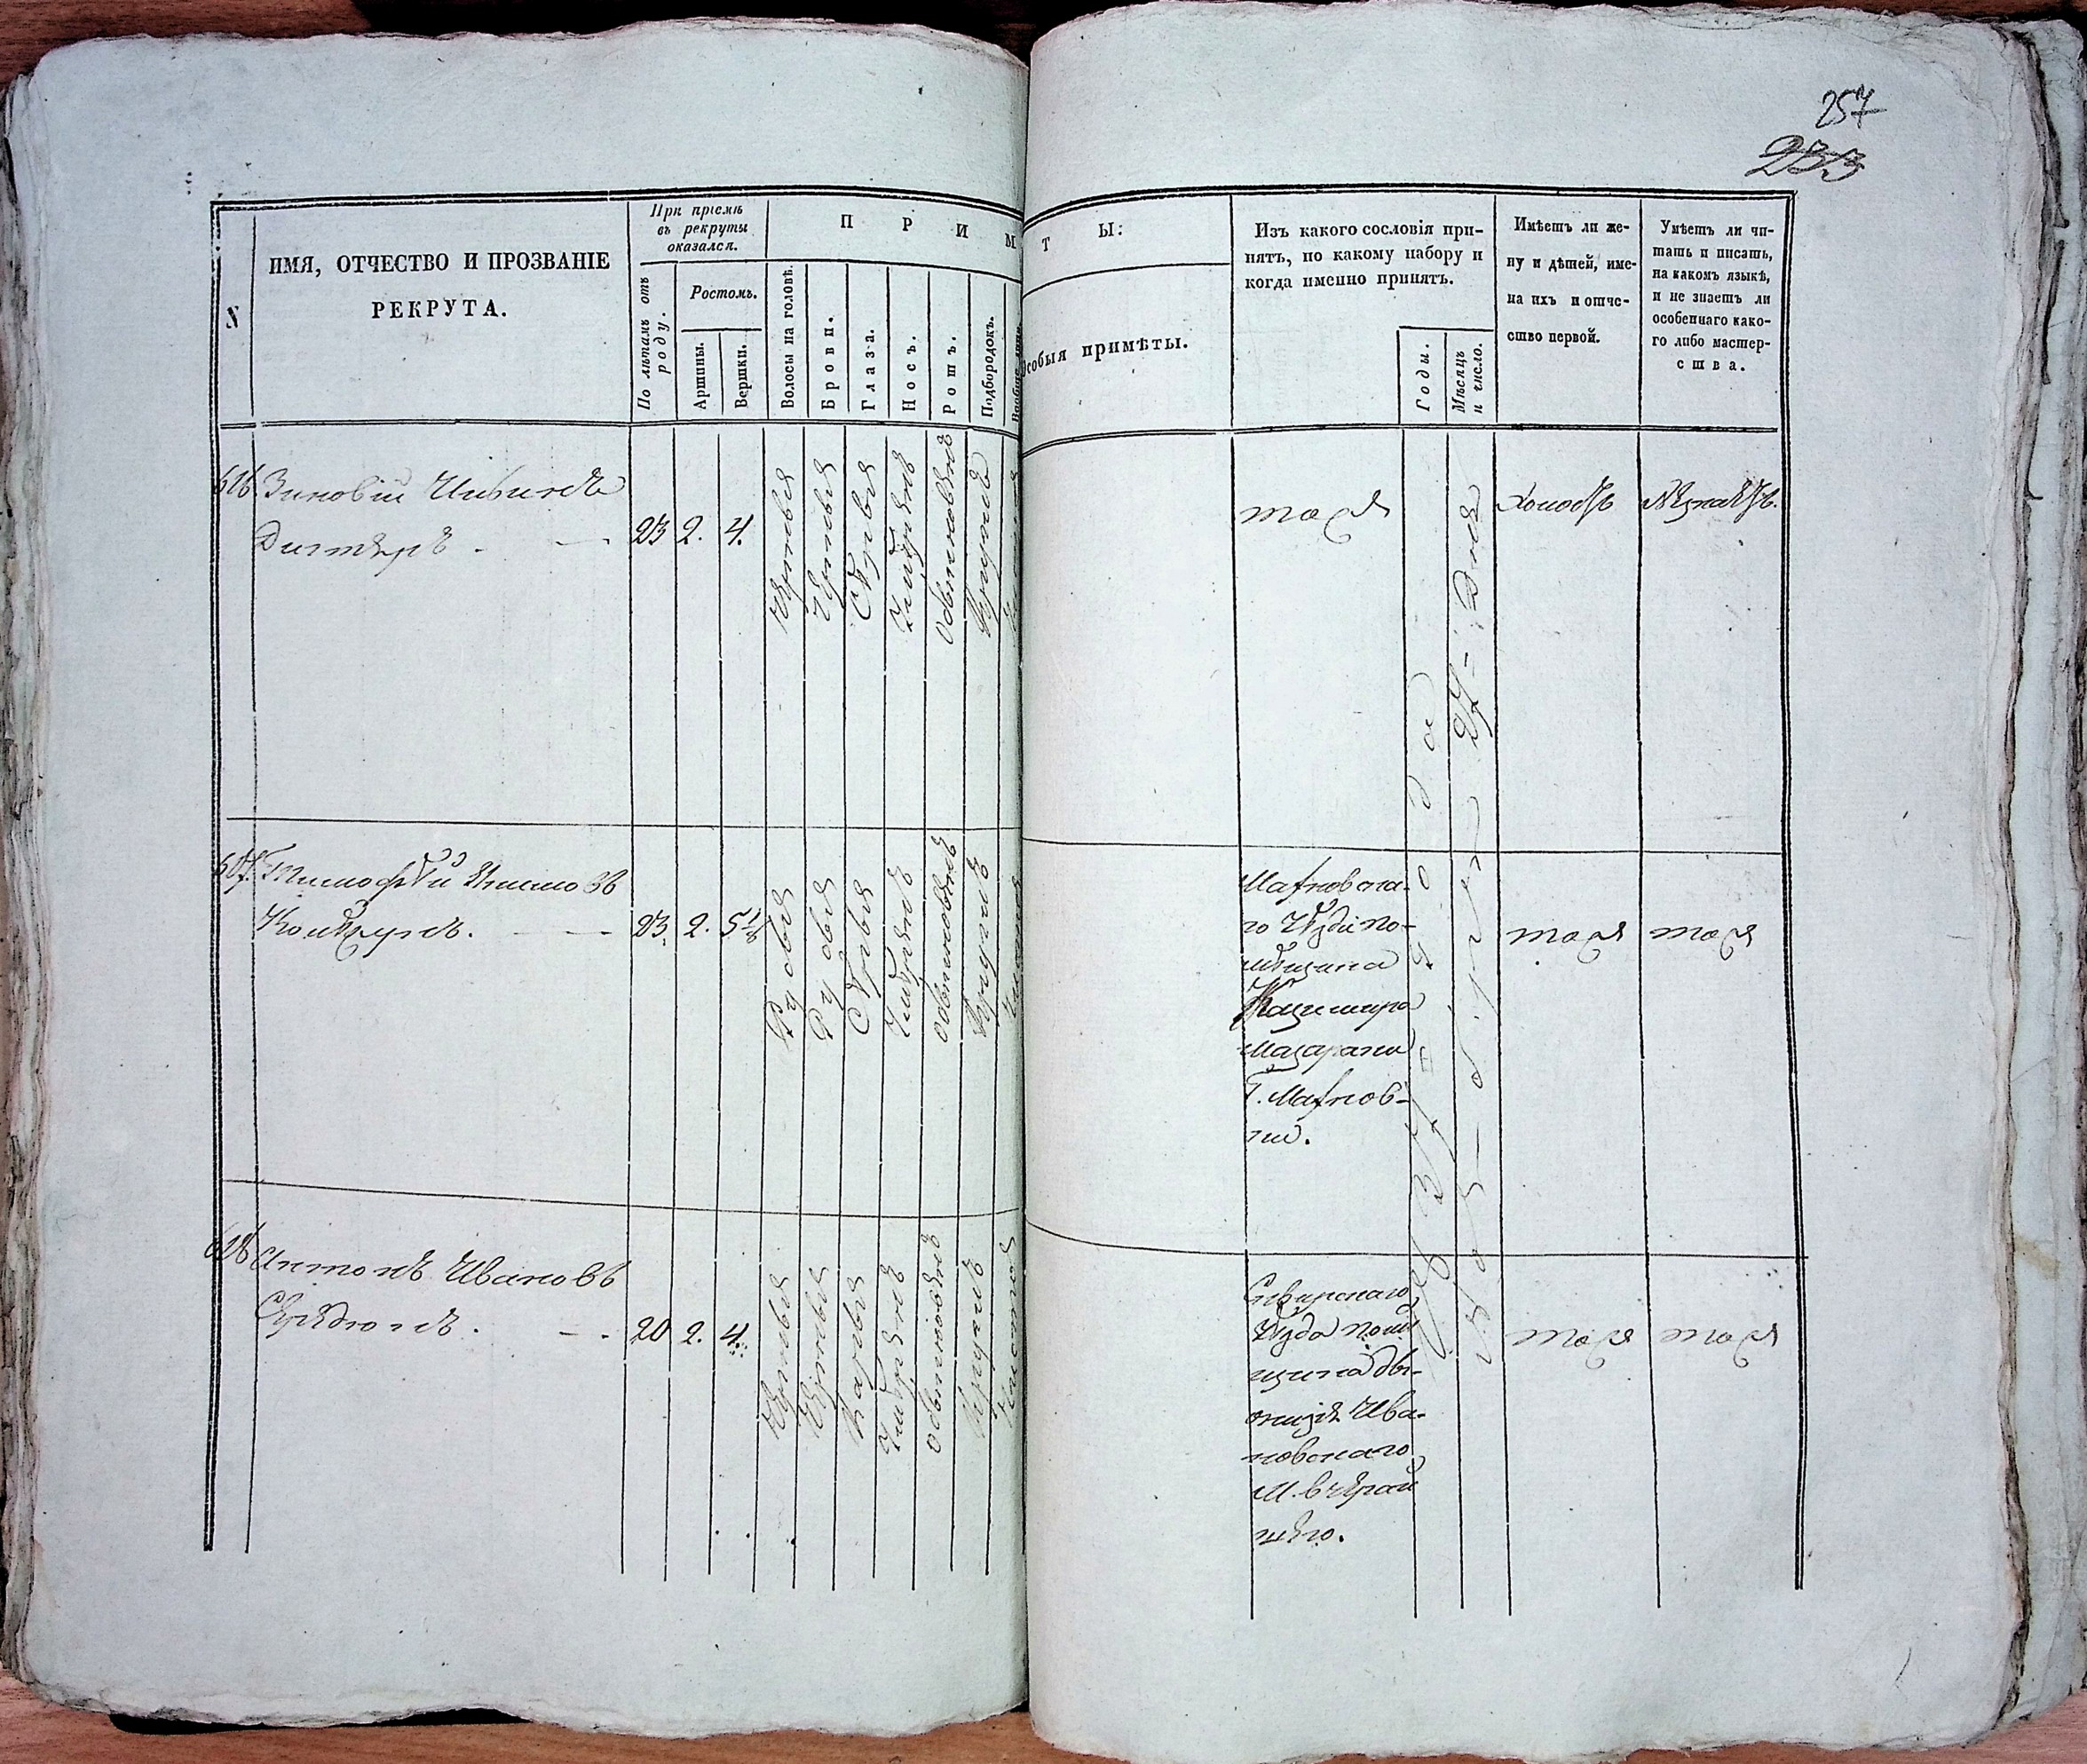 257
233
N
ИМЯ, ОТЧЕСТВО И ПРОЗВАНІЕ
РЕКРУТА.
При пріемѣ
въ рекруты
оказался.
По лѣтамъ отъ
роду.
Ростомъ.
Аршины.
Вершки.
П Р И М
Волосы на головѣ.
Брови.
Глаза.
Носъ.
Ротъ.
Подбородокъ.
Т Ы:
Особыя примѣты.
Изъ какого сословія при-
нятъ, по какому набору и
когда именно принятъ.
Годы.
Мѣсяцъ
и число.
Имѣетъ ли же-
ну и дѣтей, име-
на ихъ и отче-
ство первой.
Умѣетъ ли чи-
тать и писать,
на какомъ языкѣ,
и не знаетъ ли
особеннаго како-
го либо мастер-
ства.
Зиновій
23 2. 4.
Черныя
Черныя
Сѣрыя
Умѣренъ
Обыкновенъ
Круглъ
тоже
Холостъ
Незнаетъ.
Тимофѣй
23. 2.
Русыя
Русыя
Сѣрыя
Умѣренъ
Обыкновенъ
Круглъ
Махновска-
го Уѣзда по-
мѣщика
Казимира
Мазараки
Махнов-
ки.
тоже
тоже
года
Антонъ Ивановъ
20 2. 4.
Черныя
Черныя
Карыя
Умѣренъ
Обыкновенъ
Круглъ
Чистое
Сквирскаго
Уѣзда помѣ
щика Ді-
онизія Ива-
новскаго
М. Вчерай
шего.
тоже
тоже